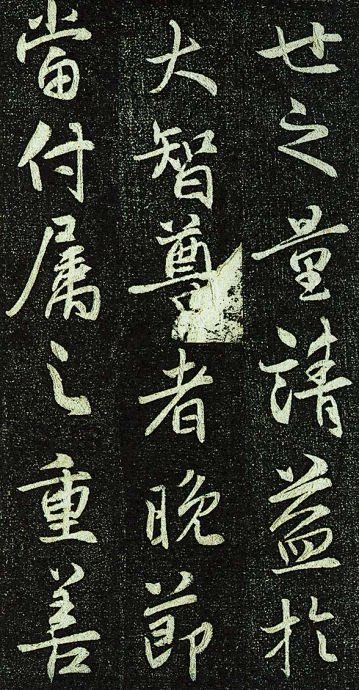 世之量請益於
大智尊者晚節
當付屬之重善